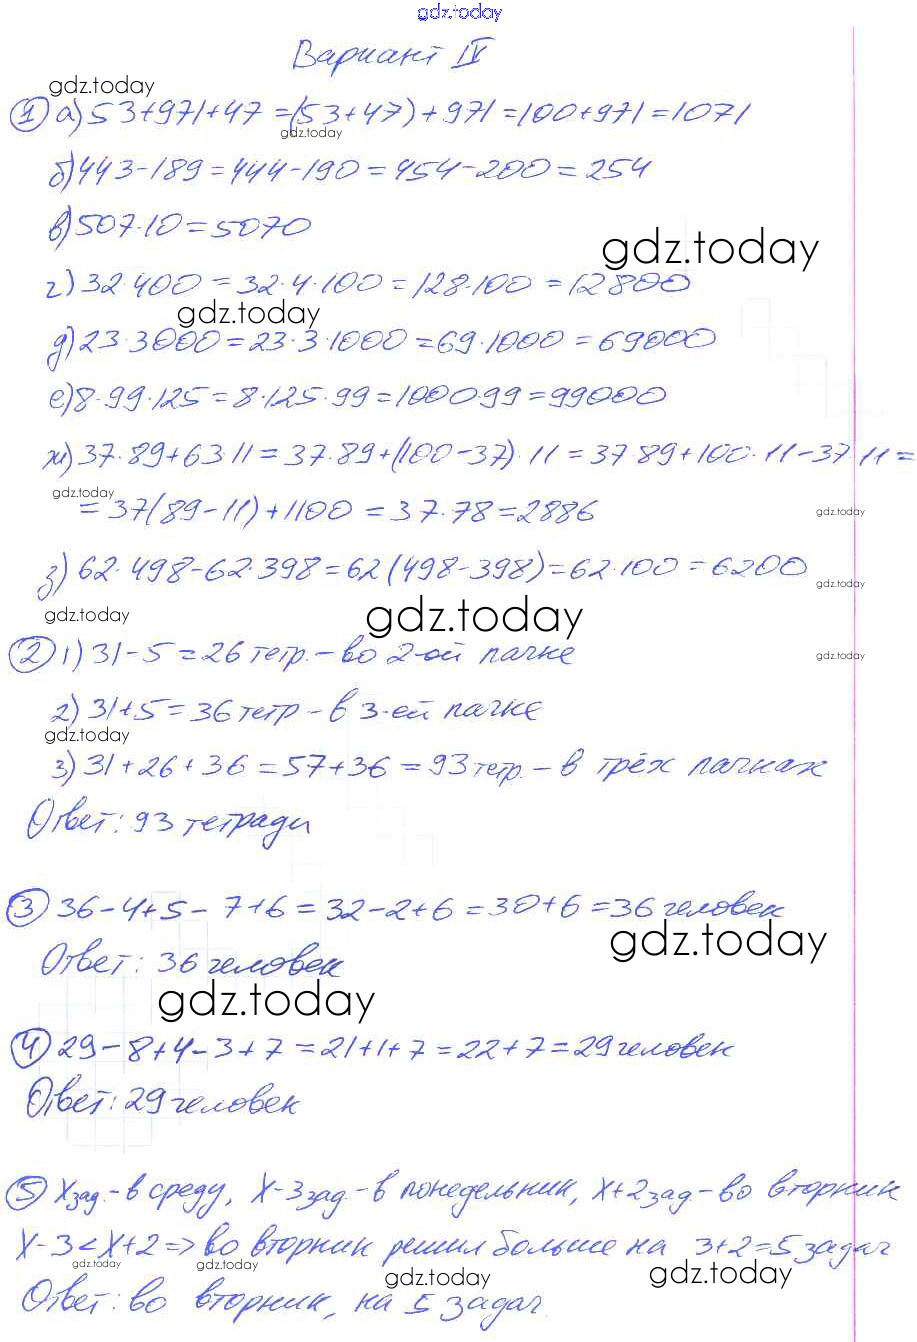 gdz.today
Вариант IV
gdz.today
1 а) 53+971+47=(53+47)+971=100+971=1071
gdz.today
б) 443-189=444-190=454-200=254
в) 507·10=5070
gdz.today
г) 32·400=32·4·100=128·100=12800
gdz.today
д) 23·3000=23·3·1000=69·1000=69000
е) 8·99·125=8·125·99=1000·99=99000
ж) 37·89+63·11=37·89+(100-37)·11=37·89+100·11-37·11=
gdz.today
=37(89-11)+1100=37·78=2886
gdz.today
з) 62·498-62·398=62(498-398)=62·100=6200
gdz.today
gdz.today
gdz.today
2 1) 31-5=26 тетр.-во 2-ой пачке
gdz.today
2) 31+5=36 тетр-в 3-ей пачке
gdz.today
3) 31+26+36=57+36=93 тетр.-в трёх пачках
Ответ: 93 тетради
3 36-4+5-7+6=32-2+6=30+6=36 человек
gdz.today
Ответ: 36 человек
gdz.today
4 29-8+4-3+7=21+1+7=22+7=29 человек
Ответ: 29 человек
5 x зад.-в среду, x-3 зад.-в понедельник, x+2 зад-во вторник
x-3<x+2=>во вторник решил больше на 3+2=5 задач
gdz.today
gdz.today
gdz.today
gdz.today
Ответ: во вторник, на 5 задач.